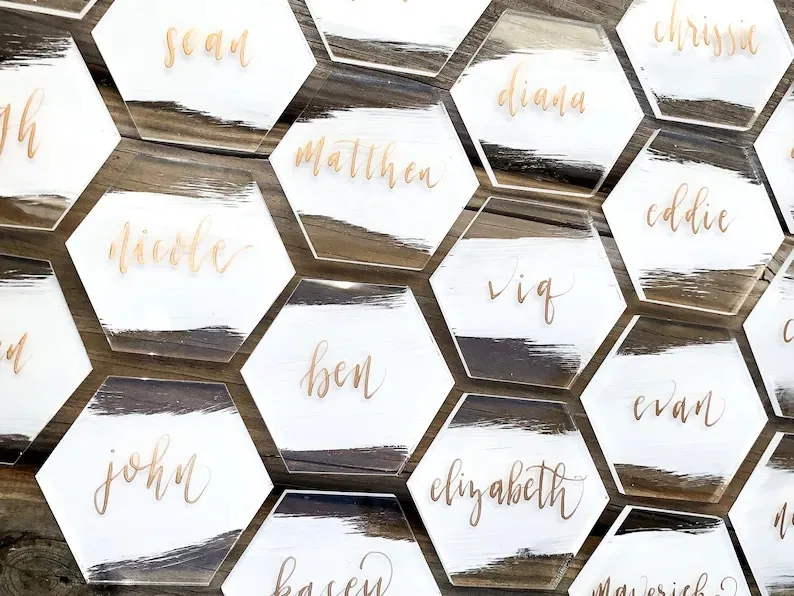 sean
chrissie
diana
gh
matthew
eddie
nicole
viq
ben
evan
john
elizabeth
kasey
maverick